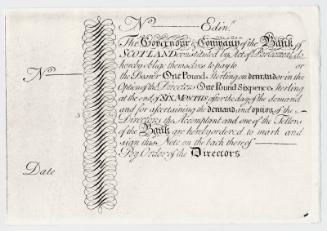 No Edinr.
The Governor & Company of the Bank of
SCOTLAND constituted by Act of Parliament do
hereby oblige themselves to pay to or
the Bearer One Pound Sterling on demand or in the
Option of the Directors One Pound Six pence Sterling
at the end of SIX MONTHS after the day of the demand
and for ascertaining the demand and option of the
Directors the Accomptant and one of the Tellers
of the Bank are hereby ordered to mark and
sign this Note on the back thereof
By Order of the Directors
No
Date